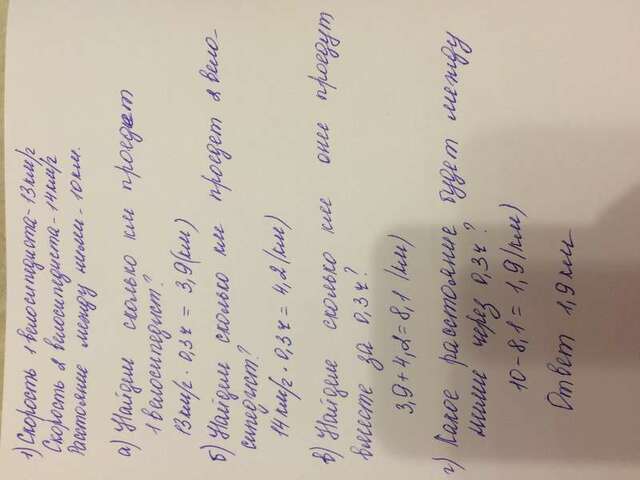 1) Скорость 1 велосипедиста - 13 км/г
Скорость 2 велосипедиста - 14 км/г
Расстояние между ними - 10 км.
а) Найдем сколько км проедет
1 велосипедист?
13 км/г · 0,3 ч = 3,9 (км)
б) Найдем сколько км проедет 2 вело-
сипедист?
14 км/г · 0,3 ч = 4,2 (км)
в) Найдем сколько км они проедут
вместе за 0,3 ч?
3,9 + 4,2 = 8,1 (км)
г) Какое расстояние будет между
ними через 0,3 ч?
10 - 8,1 = 1,9 (км)
Ответ 1,9 км